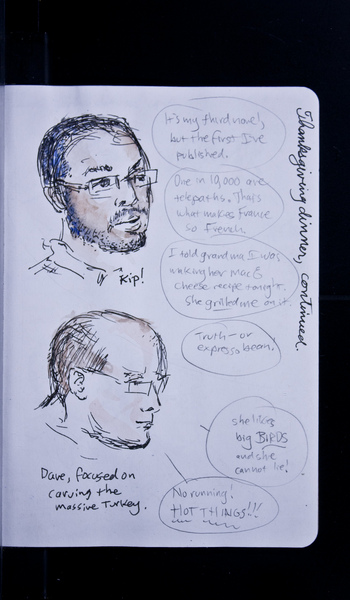 Thanksgiving dinner, continued.
It's my third novel,
but the first I've
published.
One in 10,000 are
telepaths. Thats
what makes France
so French.
I told grandma I was
making her Mac &
cheese recipe tonight,
she grilled me on it.
Kip!
Truth - or
espresso bean.
she likes
big BIRDS
and she
cannot lie!
Dave, focused on
carving the
massive Turkey.
No running!
HOT THINGS!!!